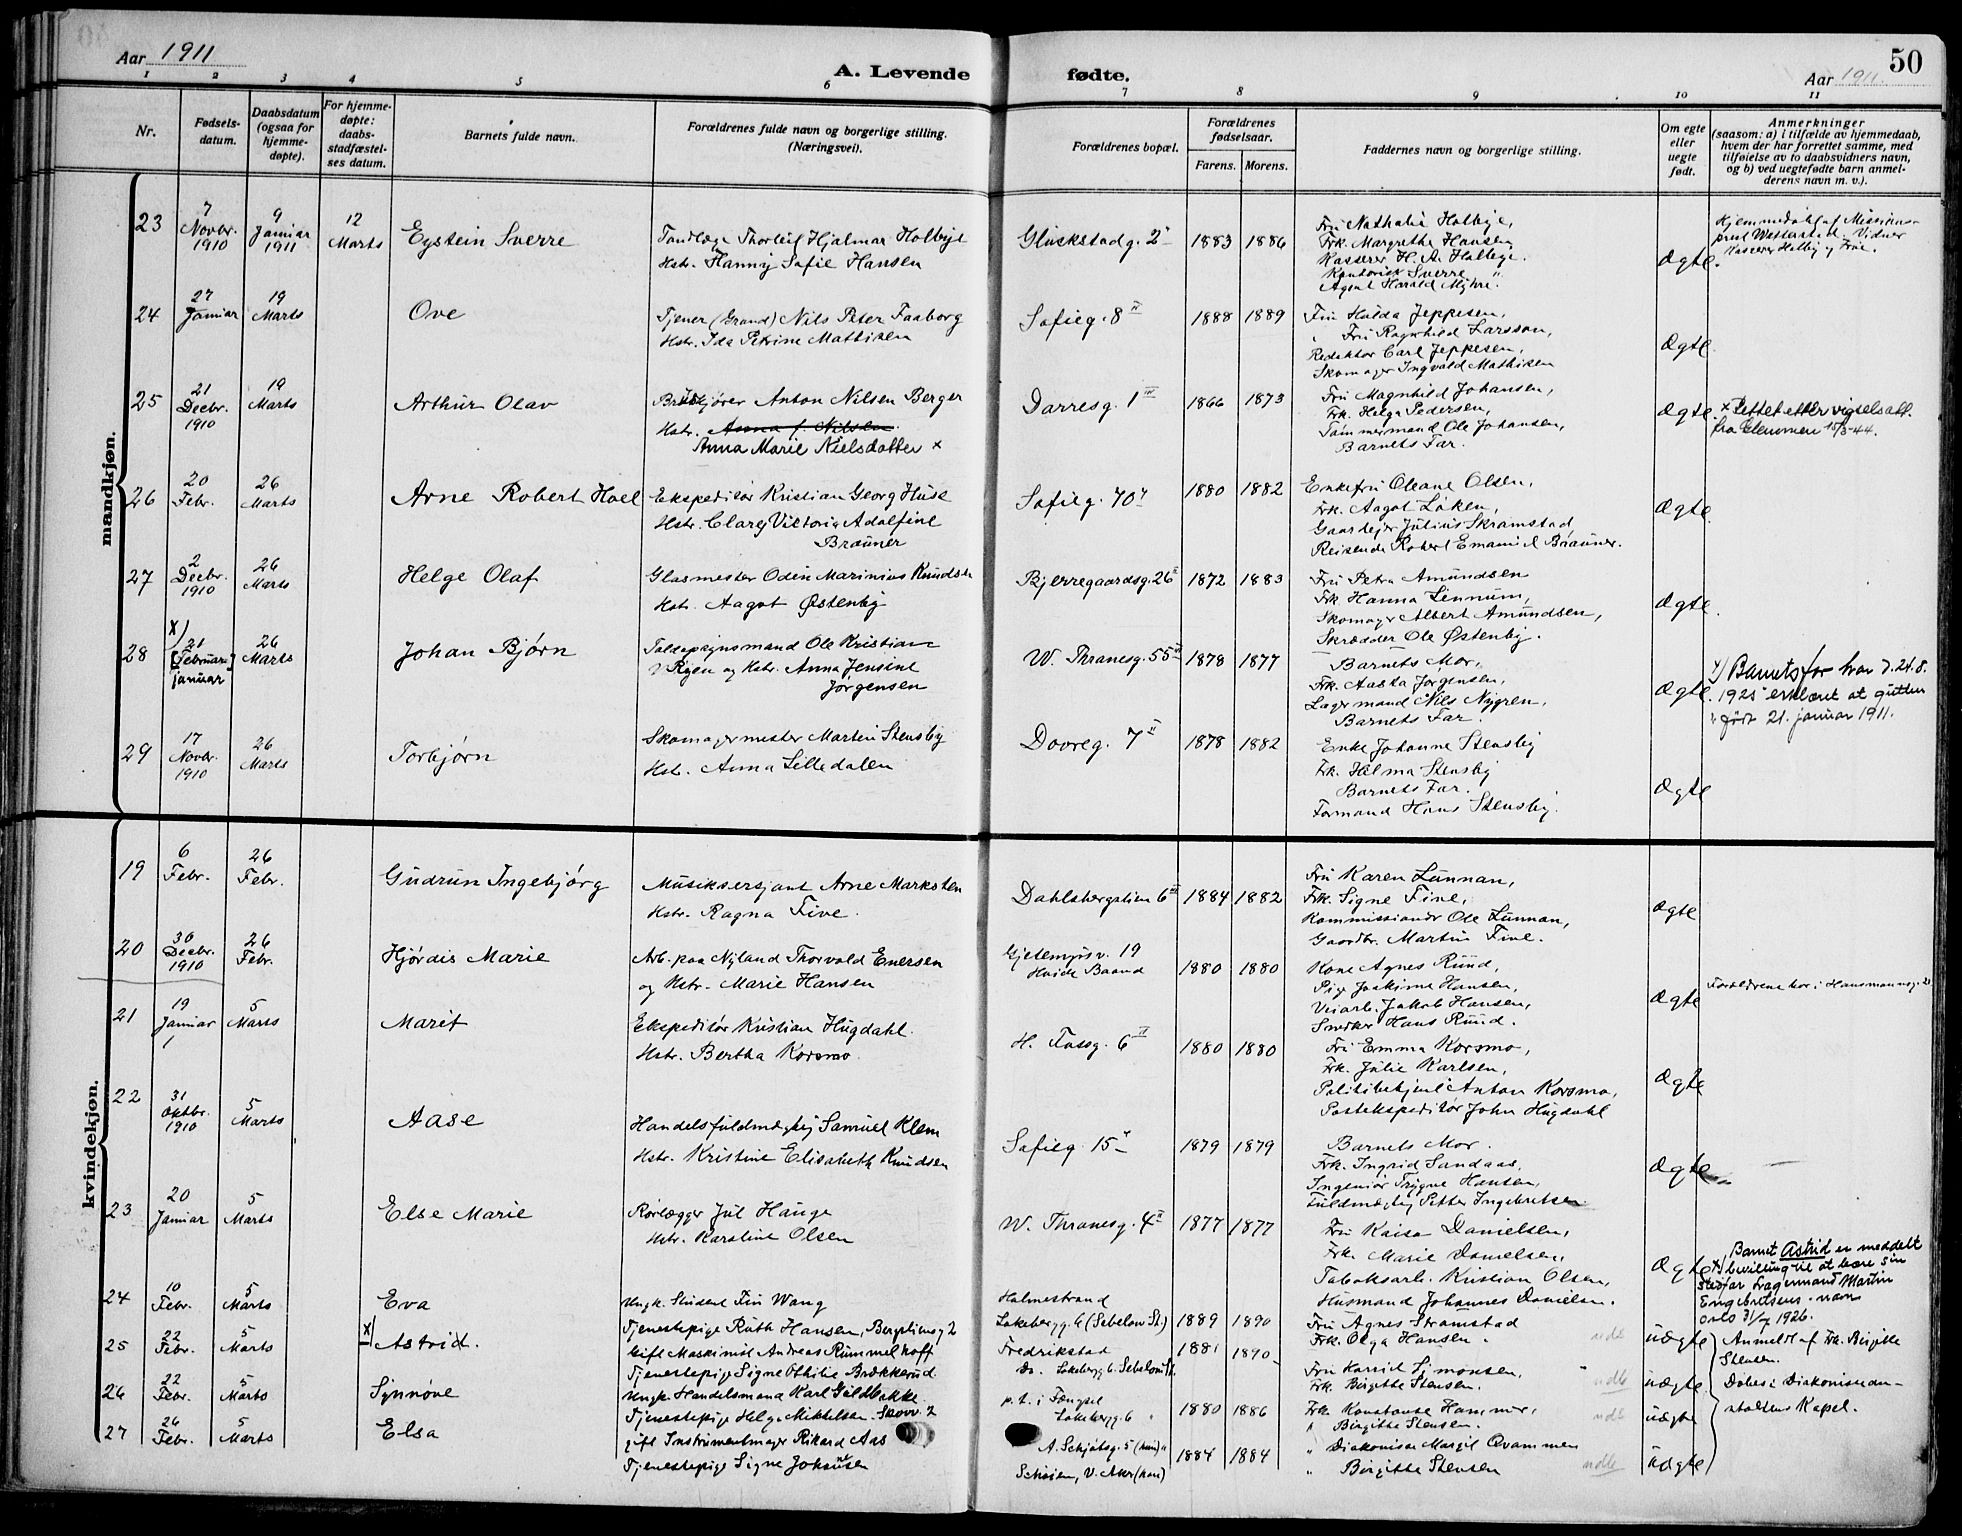 Aar 1911
A. Levende fødte.
Aar 1911.
50
1 2 3 4 5 6 7 8 9 10 11
Nr.
Fødsels-
datum.
Daabsdatum
(ogsaa for
hjemme-
døpte).
For hjemme-
døpte:
daabs-
stadfæstel-
ses datum.
Barnets fulde navn.
Forældrenes fulde navn og borgerlige stilling.
(Næringsvei).
Forældrenes bopæl.
Forældrenes
fødselsaar.
Farens. Morens.
Faddernes navn og borgerlige stilling.
Om egte
eller
uegte
født.
Anmerkninger
(saasom: a) i tilfælde av hjemmedaab,
hvem der har forrettet samme, med
tilføielse av to daabsvidners navn,
og b) ved uegtefødte barn anmel-
derens navn m. v.).
mandkjøn.
23
7
Novbr.
1910
9
Januar
1911
12
Marts
Eystein Sverre
Tandlæge Thorleif Hjalmar Holbye
Hstr. Hanny Sofie Hansen
Glückstadg. 2
1883 1886
Fru Nathalie Holbye,
Frk. Margrethe Hansen,
Kasserer H. A. Holbye.
Kontorist Sverre "
Agent Harald Myhre.
Ægte.
Hjemmedøbt af Missions-
prest
Vidner
Kasserer Holby og Frue.
24
27
Januar
19
Marts
Ove
Tjener (Grand) Nils Peter Faaborg
Hstr. Ida Petrine Mathisen
Sofieg. 8 II
1888 1889
Fru Hulda Jeppesen,
" Fru Ragnhild Larsson,
Redaktør Carl Jeppesen,
Skomager Ingvald Mathisen
Ægte.
25
21
Decbr.
1910
19
Marts
Arthur Olav
Anton Nilsen Berger
Hstr. Anna f. Nilsen
Anna Marie Nielsdatter x
Darresg. 1 III
1866 1873
Fru Magnhild Johansen,
Frk. Helga Pedersen,
Tømmermand Ole Johansen,
Barnets Far.
Ægte.
x Rettet etter vigselsatt.
fra Glemmen 15/3-44.
26
20
Febr.
26
Marts
Arne Robert Hoel
Ekspeditør Kristian Georg Huse
Hstr. Clary Viktoria Adolfine
Brauner
Sofieg. 70
1880 1882
Enkefru Oleane Olsen,
Frk. Aagot Løken,
Gaardejer Julius Skramstad,
Reisende Robert Emanuel Brauner.
Ægte.
27
2
Decbr.
1910
26
Marts
Helge Olaf
Glasmester Odin Marinius Knudsen
Hstr. Aagot Østenby
Bjerregaardsg. 26 II
1872 1883
Fru Petra Amundsen
Frk. Hanna Linnum,
Skomager Albert Amundsen,
Skrædder Ole Østenby.
Ægte.
28
x)
21
[Februar]
januar
26
Marts
Johan Bjørn
Toldopsynsmand Ole Kristian
Ryen og Hstr. Anna Jensine
Jørgensen
W. Thranesg. 55 III
1878 1877
Barnets Mor,
Frk. Aasta Jørgensen,
Lagermand Nils Nygren,
Barnets Far.
Ægte.
x) Barnets far har d. 24.8.
1925 erklæret at gutten
er født 21. januar 1911.
29
17
Novbr.
1910
26
Marts
Torbjørn
Skomagermester Martin Stensby
Hstr. Anna Lilledalen
Dovreg. 7 II
1878 1882
Enke Johanne Stensby
Frk. Helma Stensby
Barnets Far.
Formand Hans Stensby.
Ægte
kvindekjøn.
19
6
Febr.
26
Febr.
Gudrun Ingebjørg
Musiksersjant Arne Marksten
Hstr. Ragna Five.
Dahlsbergstien 6 III
1884 1882
Fru Karen Lunnan,
Frk. Signe Five,
Kommissionær Ole Lunnan,
Gaardbr. Martin Five.
Ægte
20
30
Decbr.
1910
26
Febr.
Hjørdis Marie
Arb. paa Nyland Thorvald Enersen
og Hstr. Marie Hansen
Gjetemyrsv. 19
1880 1880
Kone Agnes Ruud,
Pige Joakime Hansen,
Veiarb. Jakob Hansen,
Snedker Hans Ruud.
Ægte
Forældrene bor i Hausmannsg. 21
21
19
Januar
5
Marts
Marit
Ekspeditør Kristian Hugdahl.
Hstr. Bertha Korsmo.
H. Fossg. 6 II
1880 1880
Fru Emma Korsmo,
Frk. Julie Karlsen,
Politibetjent Anton Korsmo,
Postekspeditør John Hugdahl
Ægte
22
31
Oktbr.
1910
5
Marts
Aase
Handelsfuldmægtig Samuel Klem
Hstr. Kristine Elisabeth Knudsen
Sofieg. 15
1879 1879
Barnets Mor.
Frk. Ingrid Sandaas,
Ingeniør Trygve Hansen,
Fuldmægtig Petter Ingebretsen.
Ægte
23
20
Januar
5
Marts
Else Marie
Rørlægger Jul Hauge
Hstr. Karoline Olsen
W. Thranesg. 4 II
1877 1877
Fru Kaisa Danielsen,
Frk. Marie Danielsen,
Tobaksarb. Kristian Olsen,
Husmand Johannes Danielsen.
Ægte
x) Barnet Astrid er meddelt
bevilling til at bære sin
stedfar Lagermand Martin
Engebretsens navn
Oslo 31/7 1926.
24
10
Febr.
5
Marts
Eva
Ungk. Student Finn Wang
Tjenestepige Ruth Hansen, Bergliensg 2
Holmestrand
Lakkebergg. 6 (Sebelow St.)
1889 1890
Fru Agnes Strømstad
Frk. Olga Hansen.
udb
uægte
Anmeldt af Frk. Birgitte
Stensen.
Døbes i Diakonissean-
staltens Kapel.
25
22
Febr.
5
Marts
x)
Astrid.
Gift Maskinist Andreas Rummelhoff
Tjenestepige Signe Othilie Brækkerud
Fredrikstad
Do. Lakkebergg. 6. Sebelow St.
1881 1890
Fru Harrid Simonsen,
Frk. Birgitte Stensen.
udb
uægte
26
22
Febr.
5
Marts
Synnøve
Ungk. Handelsmand Karl Guldbakke.
Tjenestepige Helga Mikkelsen. Skovv. 2
p. t. i Fængsel
Lakkebergg. 6 "
1880 1886
Frk. Konstanse Hammer,
" Birgitte Stensen.
udb
uægte
27
26
Febr.
5
Marts
Elsa
gift Instrumentmager Rikard Aas
Tjenestepige Signe Johansen
A. Schjøtsg. 5 (hun) "
Schøien, V. Aker (han)
1884 1884
" Diakonisse Margit Qvammen
" Birgitte Stensen
udb
uægte